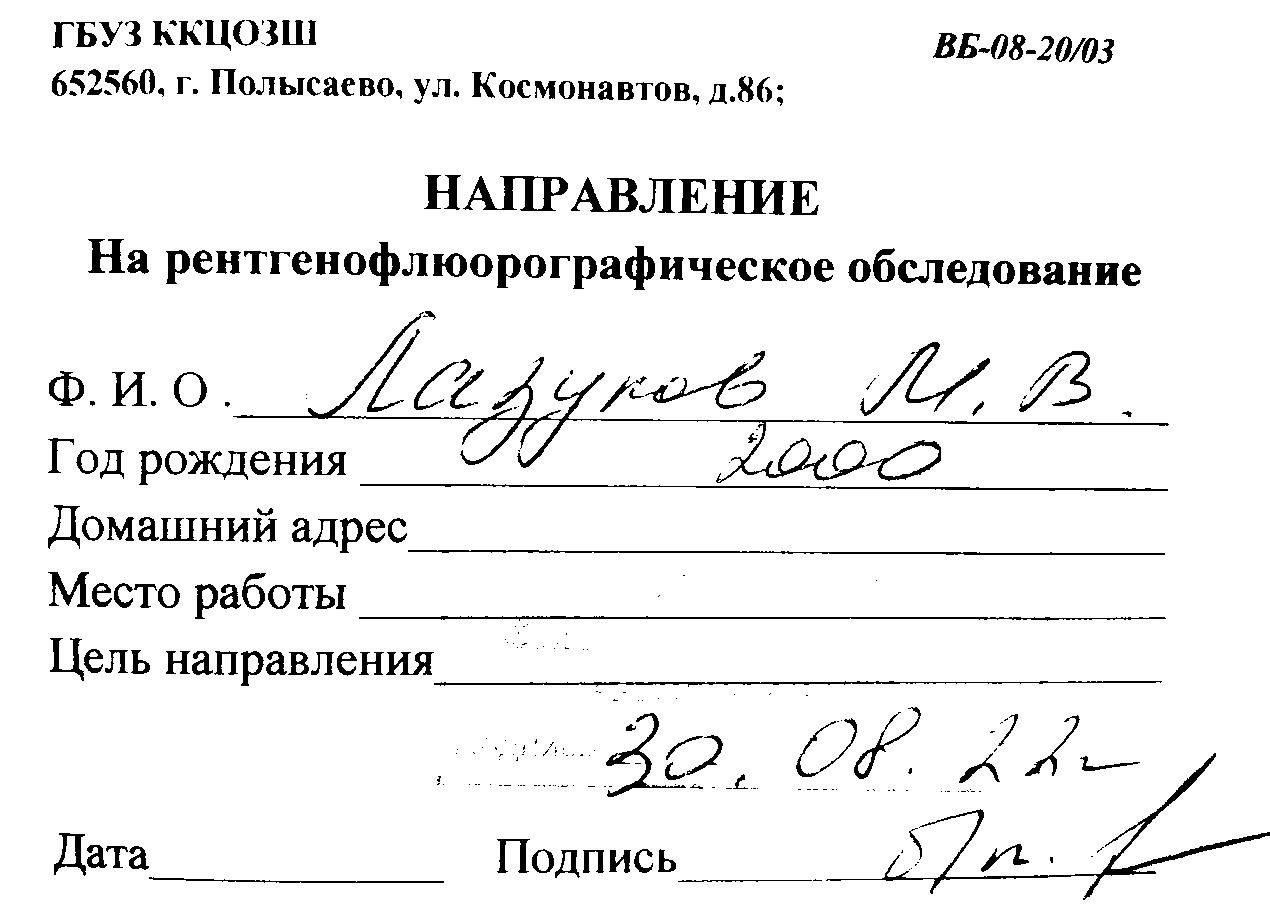 ГБУЗ ККЦОЗШ
ВБ-08-20/03
652560, г. Полысаево, ул. Космонавтов, д.86;
НАПРАВЛЕНИЕ
На рентгенофлюорографическое обследование
Ф. И. О. Лазуков М. В.
Год рождения 2000
Домашний адрес
Место работы
Цель направления
30.08.22г
Дата Подпись